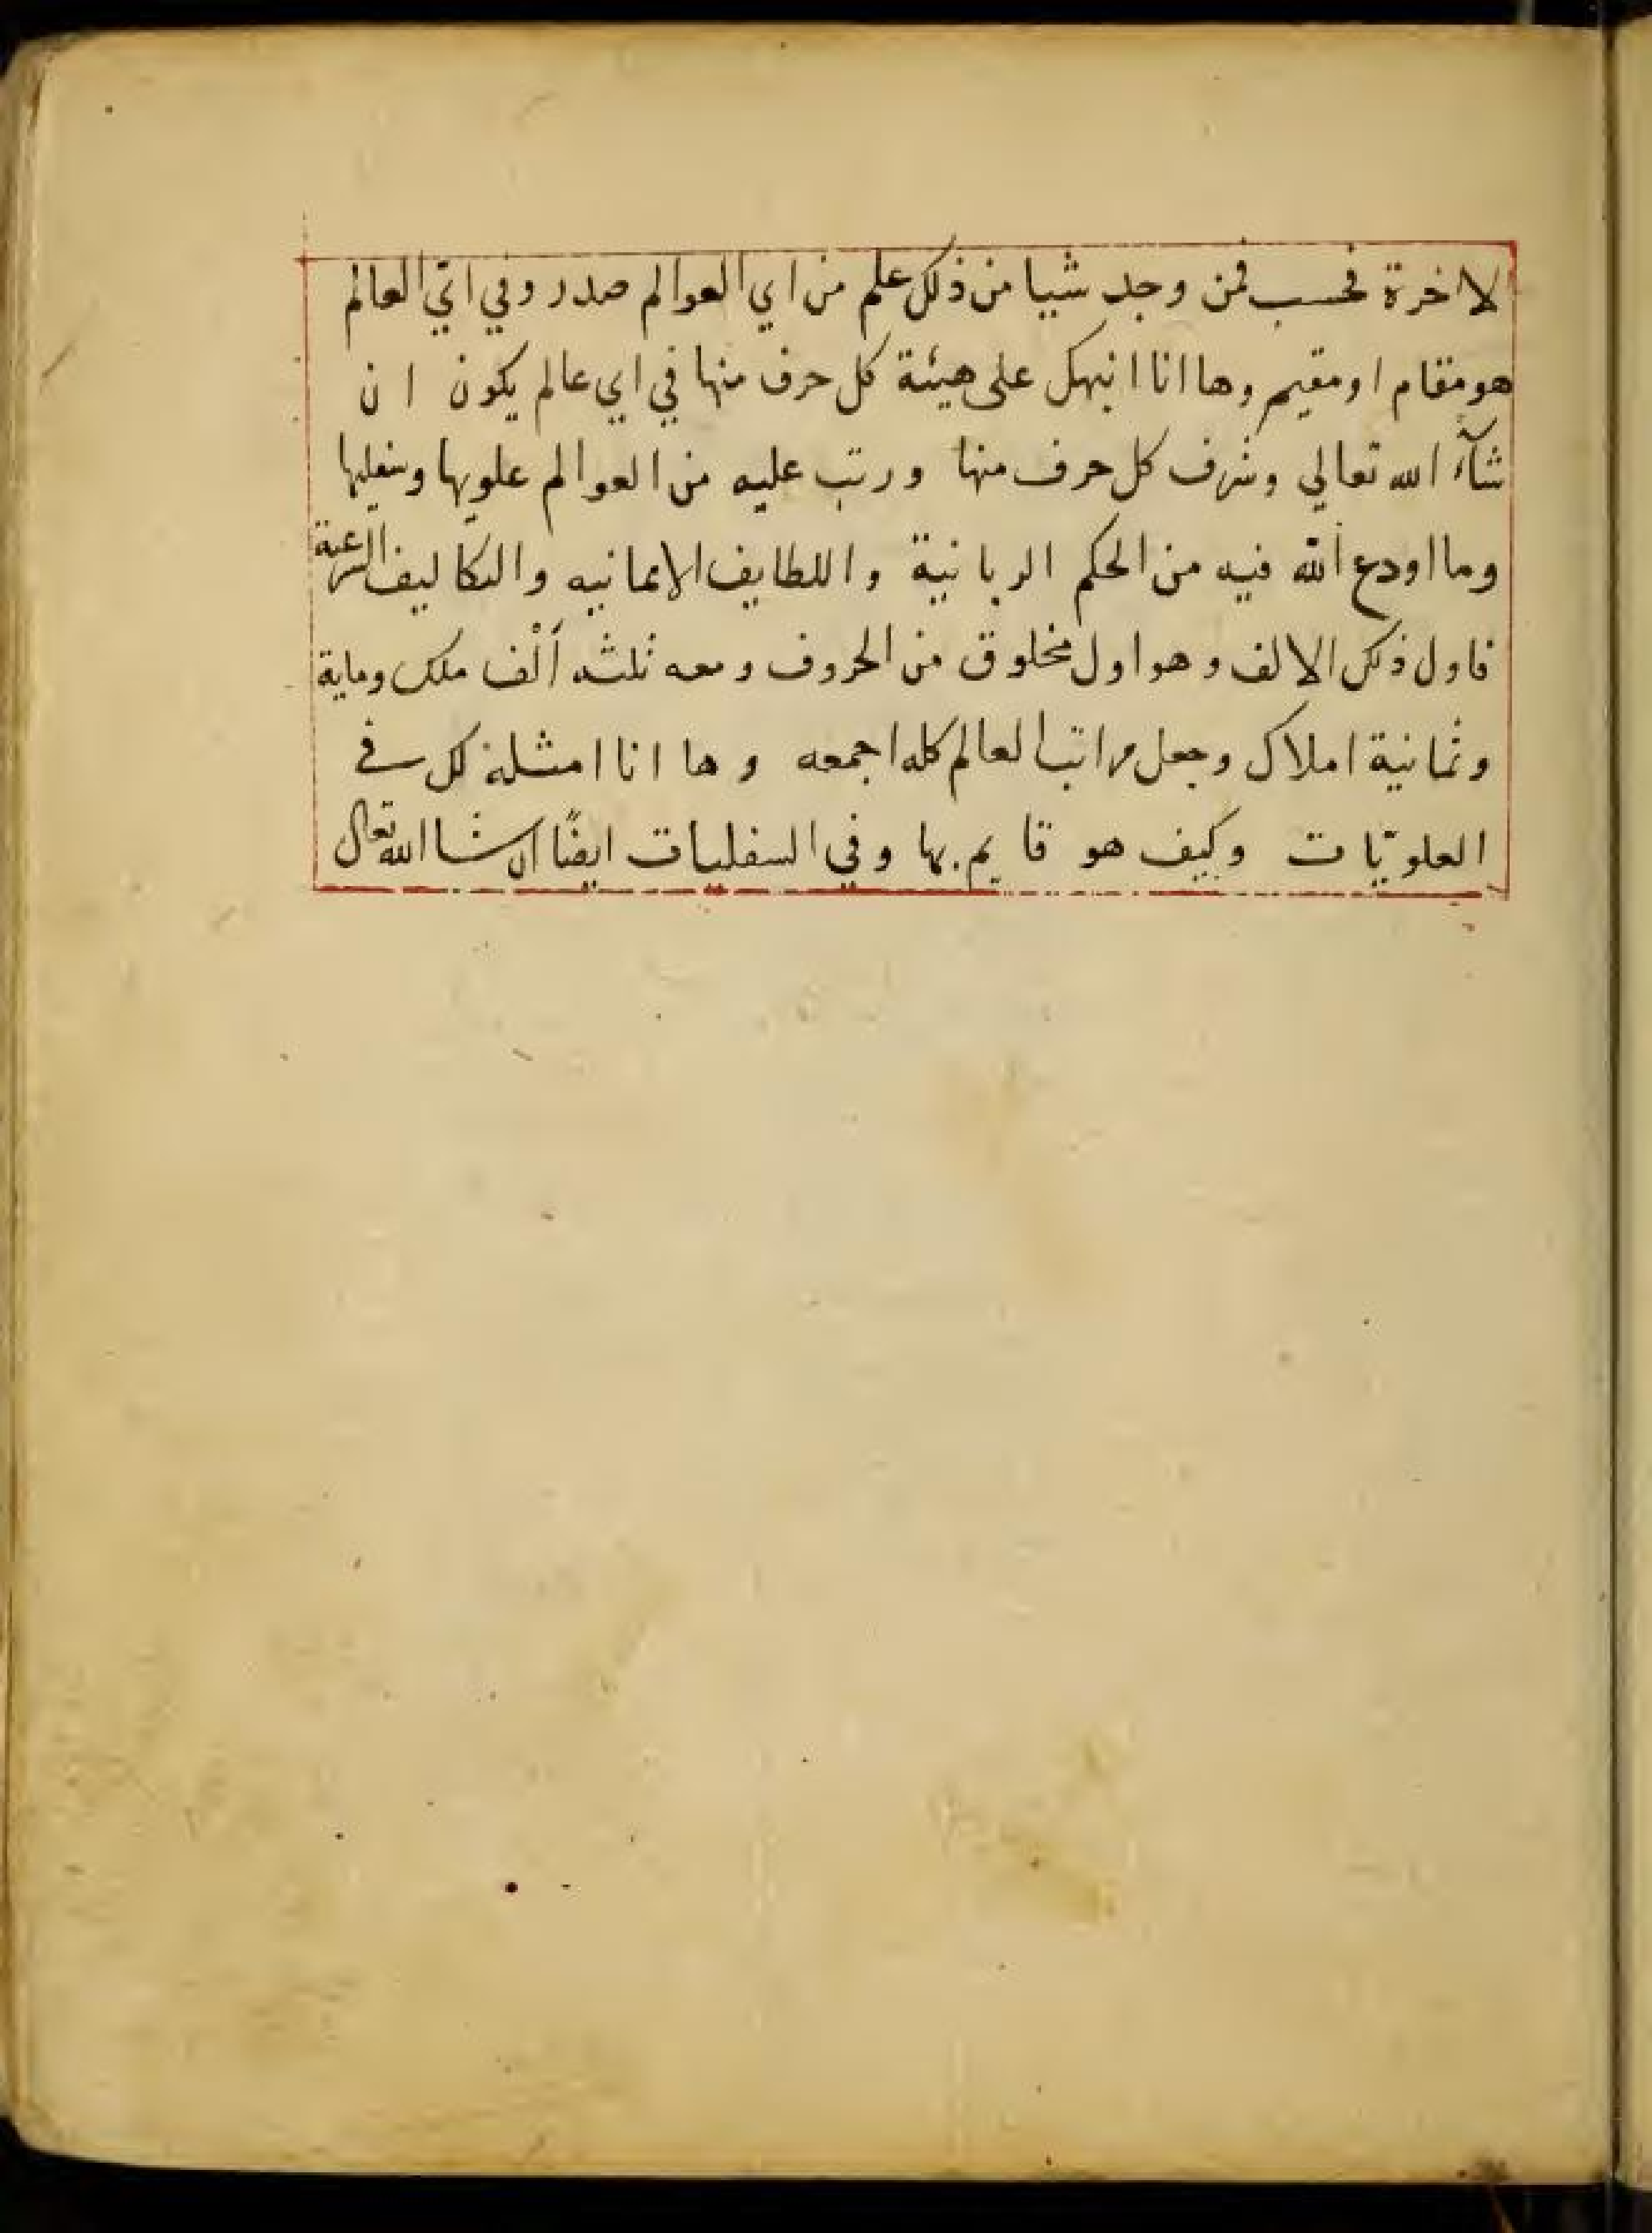 لاخرة فحسب فمن وجد شيا من ذلك علم من اي العوالم صدر وفي اي العالم
هو مقام او مقيم وها انا انبهك على هيئة كل حرف منها في اي عالم يكون ان
شآء الله تعالي وشرف كل حرف منها ورتب عليه من العوالم علويها وسفليها
وما اودع الله فيه من الحكم الربانية واللطايف الايمانيه والتكاليف الشرعية
فاول ذلك الالف وهو اول مخلوق من الحروف ومعه ثلثه ألف ملك وماية
وثمانية املاك وجعل مراتب العالم كله اجمعه وها انا امثله لك في
العلويّات وكيف هو قايم بها وفي السفليات ايضًا ان شا الله تعال